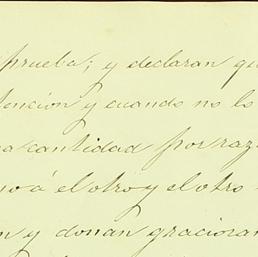 prueba; y declaran qu
tención y cuando no lo
a cantidad por raz
no á el otro y el otro
n y donan graciosam